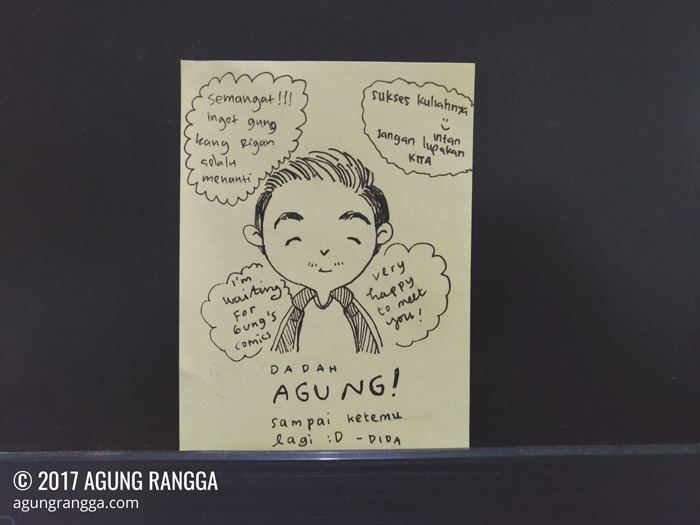 semangat!!!
inget gung
kang Rigan
selalu
menanti
sukses kuliahnya
intan
Jangan lupakan
KITA
i'm
waiting
For
Gung's
comics
very
happy
to meet
you!
DADAH
AGUNG!
sampai ketemu
lagi :D -DIDA
© 2017 AGUNG RANGGA
agungrangga.com